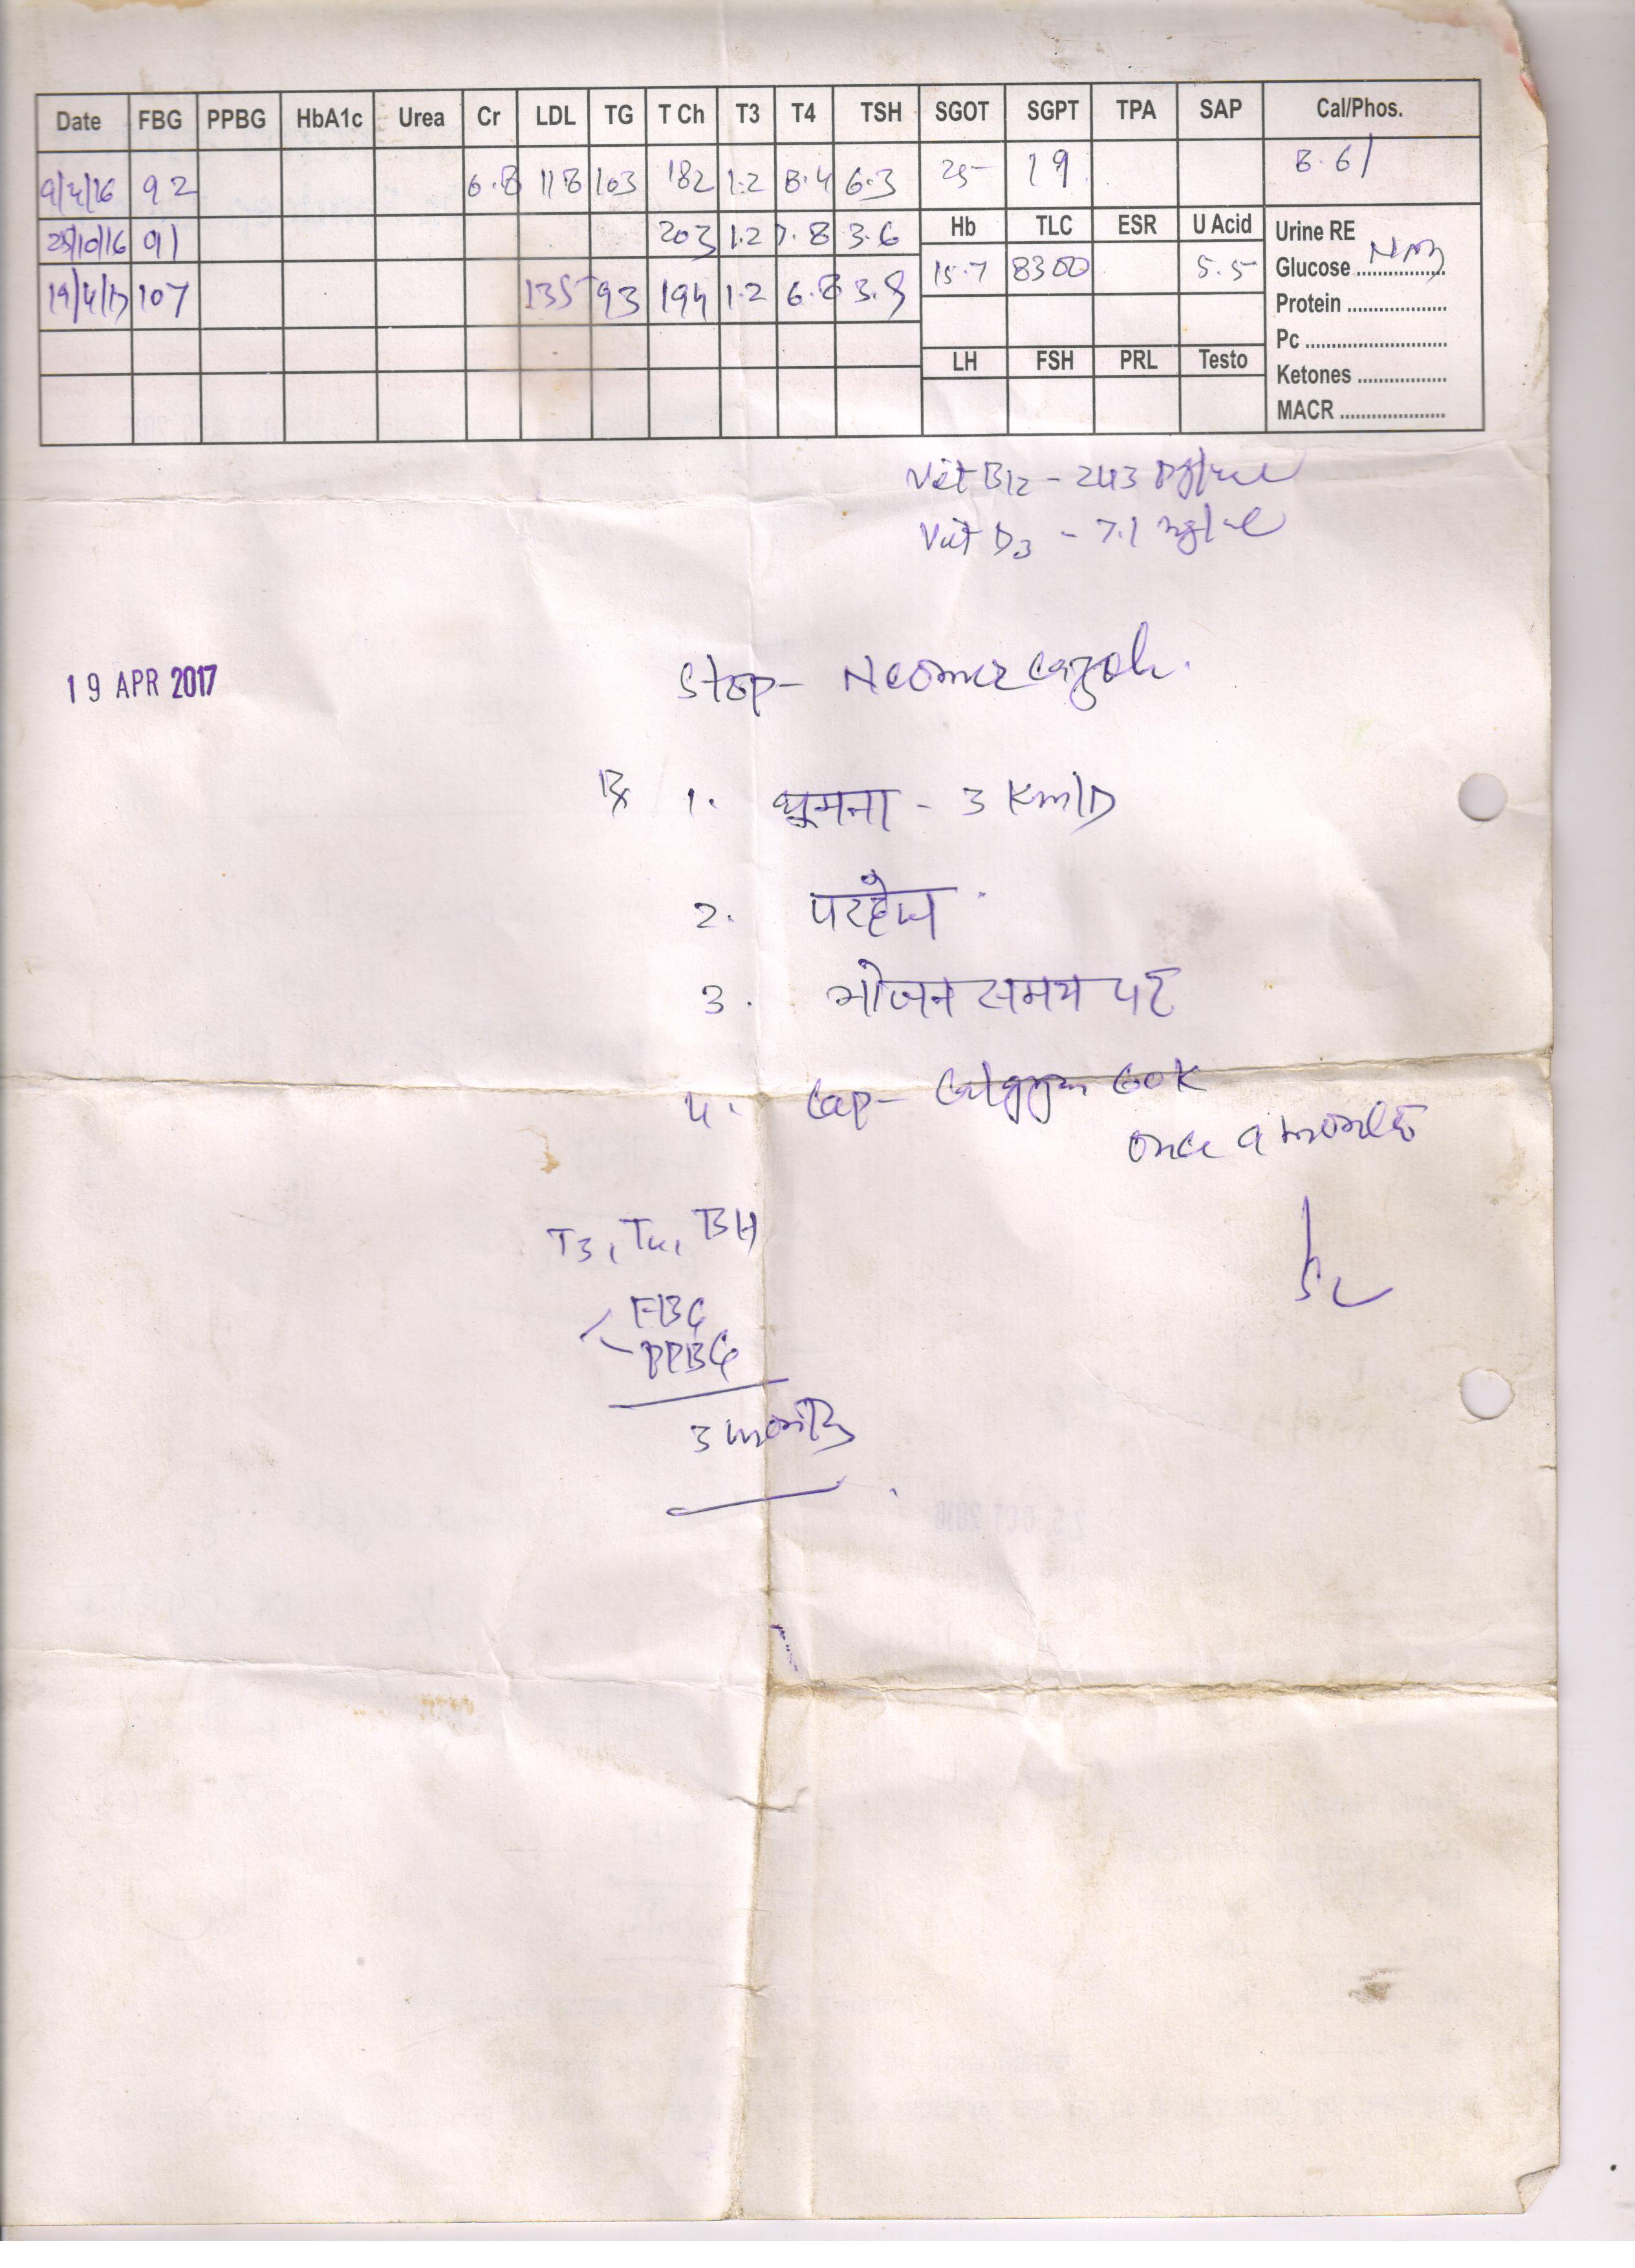 Date FBG PPBG HbA1c Urea Cr LDL TG T Ch T3 T4 TSH SGOT SGPT TPA SAP Cal/Phos.
9/4/16 92 0.8 118 103 182 1.2 8.4 6.3 25 19 8.61
25/10/16 91 203 1.2 7.8 3.6
Hb TLC ESR U Acid Urine RE
19/4/17 107 135 93 194 1.2 6.8 3.9
15.7 8300 5.5 Glucose
Protein
Pc
LH FSH PRL Testo
Ketones
MACR
Vit B12 - 243 pg/ml
Vit D3 - 7.1 ng/ml
19 APR 2017
Stop - Neomercazole.
Rx 1. घूमना - 3 Km/D
2. परहेज
3. भोजन समय पर
4. Cap - 60K
once a month
T3, T4, TSH
FBG
PPBG
3 months